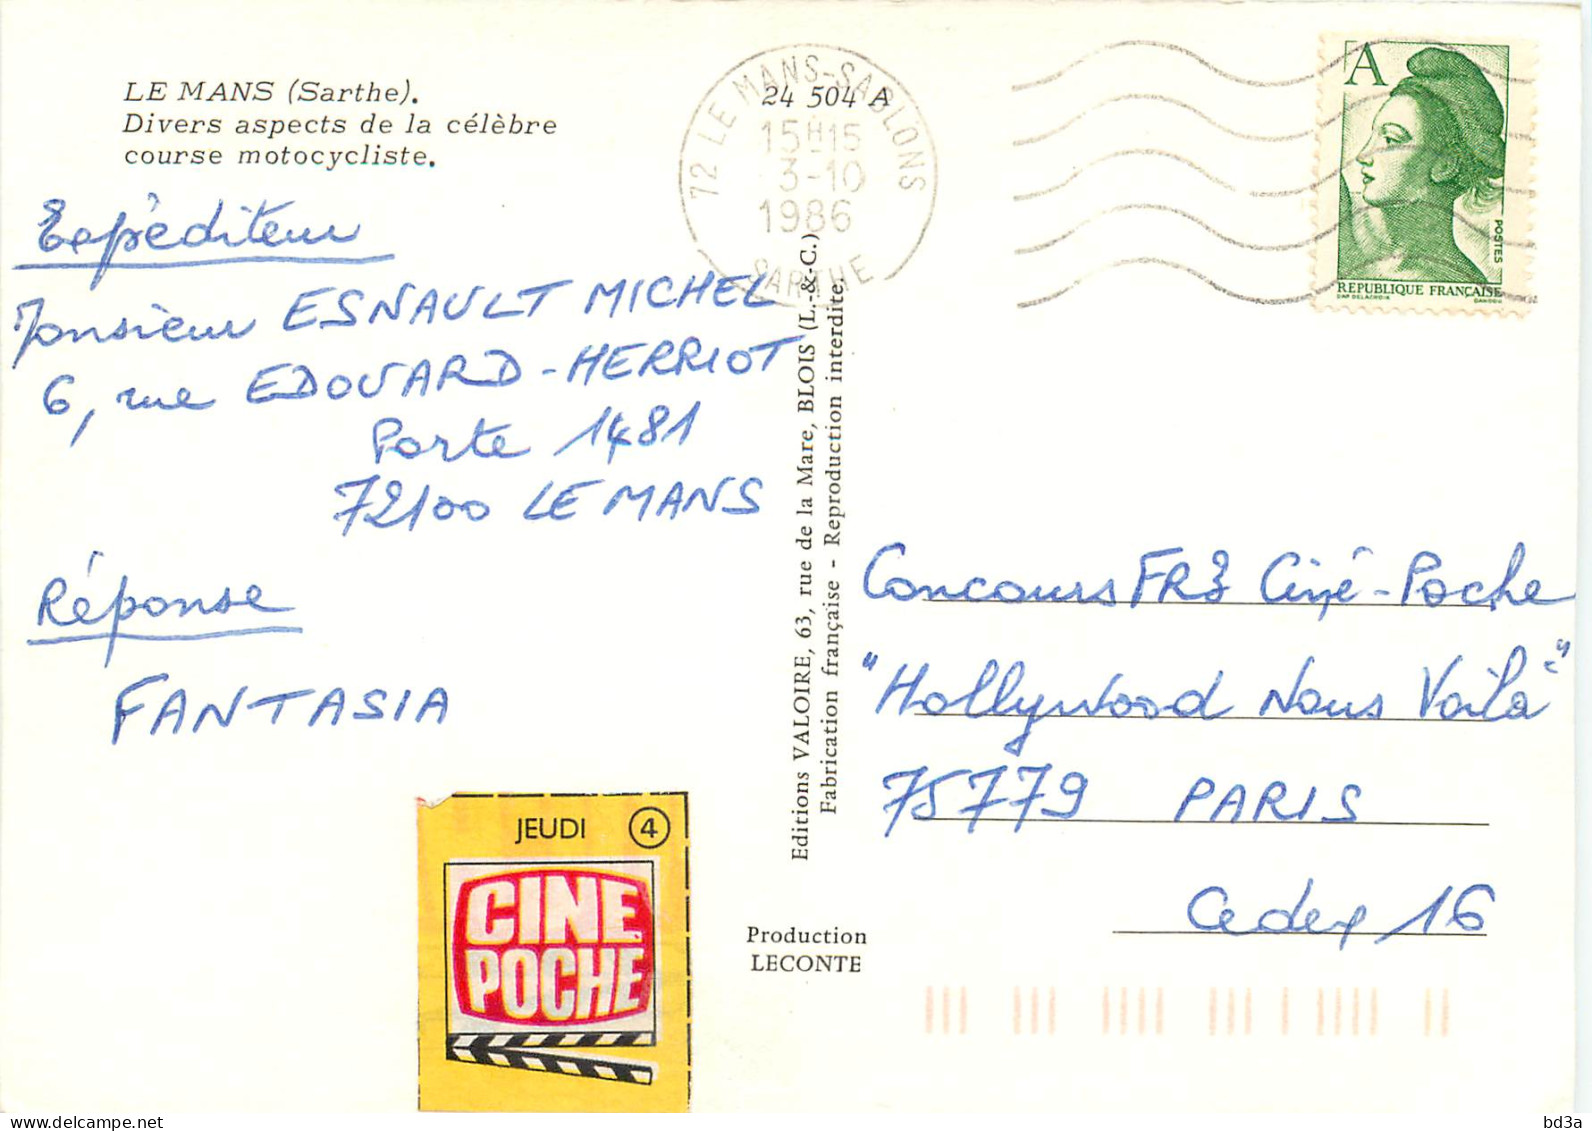 LE MANS (Sarthe).
Divers aspects de la célèbre
course motocycliste.
24 504 A
72 LE MANS-SABLONS
15H15
3-10
1986
SARTHE
A
POSTES
REPUBLIQUE FRANÇAISE
DAP DELACROIX
GANDON
Expéditeur
Monsieur ESNAULT MICHEL
6, rue EDOUARD-HERRIOT
Porte 1481
72100 LE MANS
Réponse
FANTASIA
JEUDI 4
CINE
POCHE
Editions VALOIRE, 63, rue de la Mare, BLOIS (L.-&-C.)
Fabrication française - Reproduction interdite.
Production
LECONTE
Concours FR3 Ciné-Poche
"Hollywood Nous Voilà"
75779 PARIS
Cedex 16
delcampe.net
bd3a